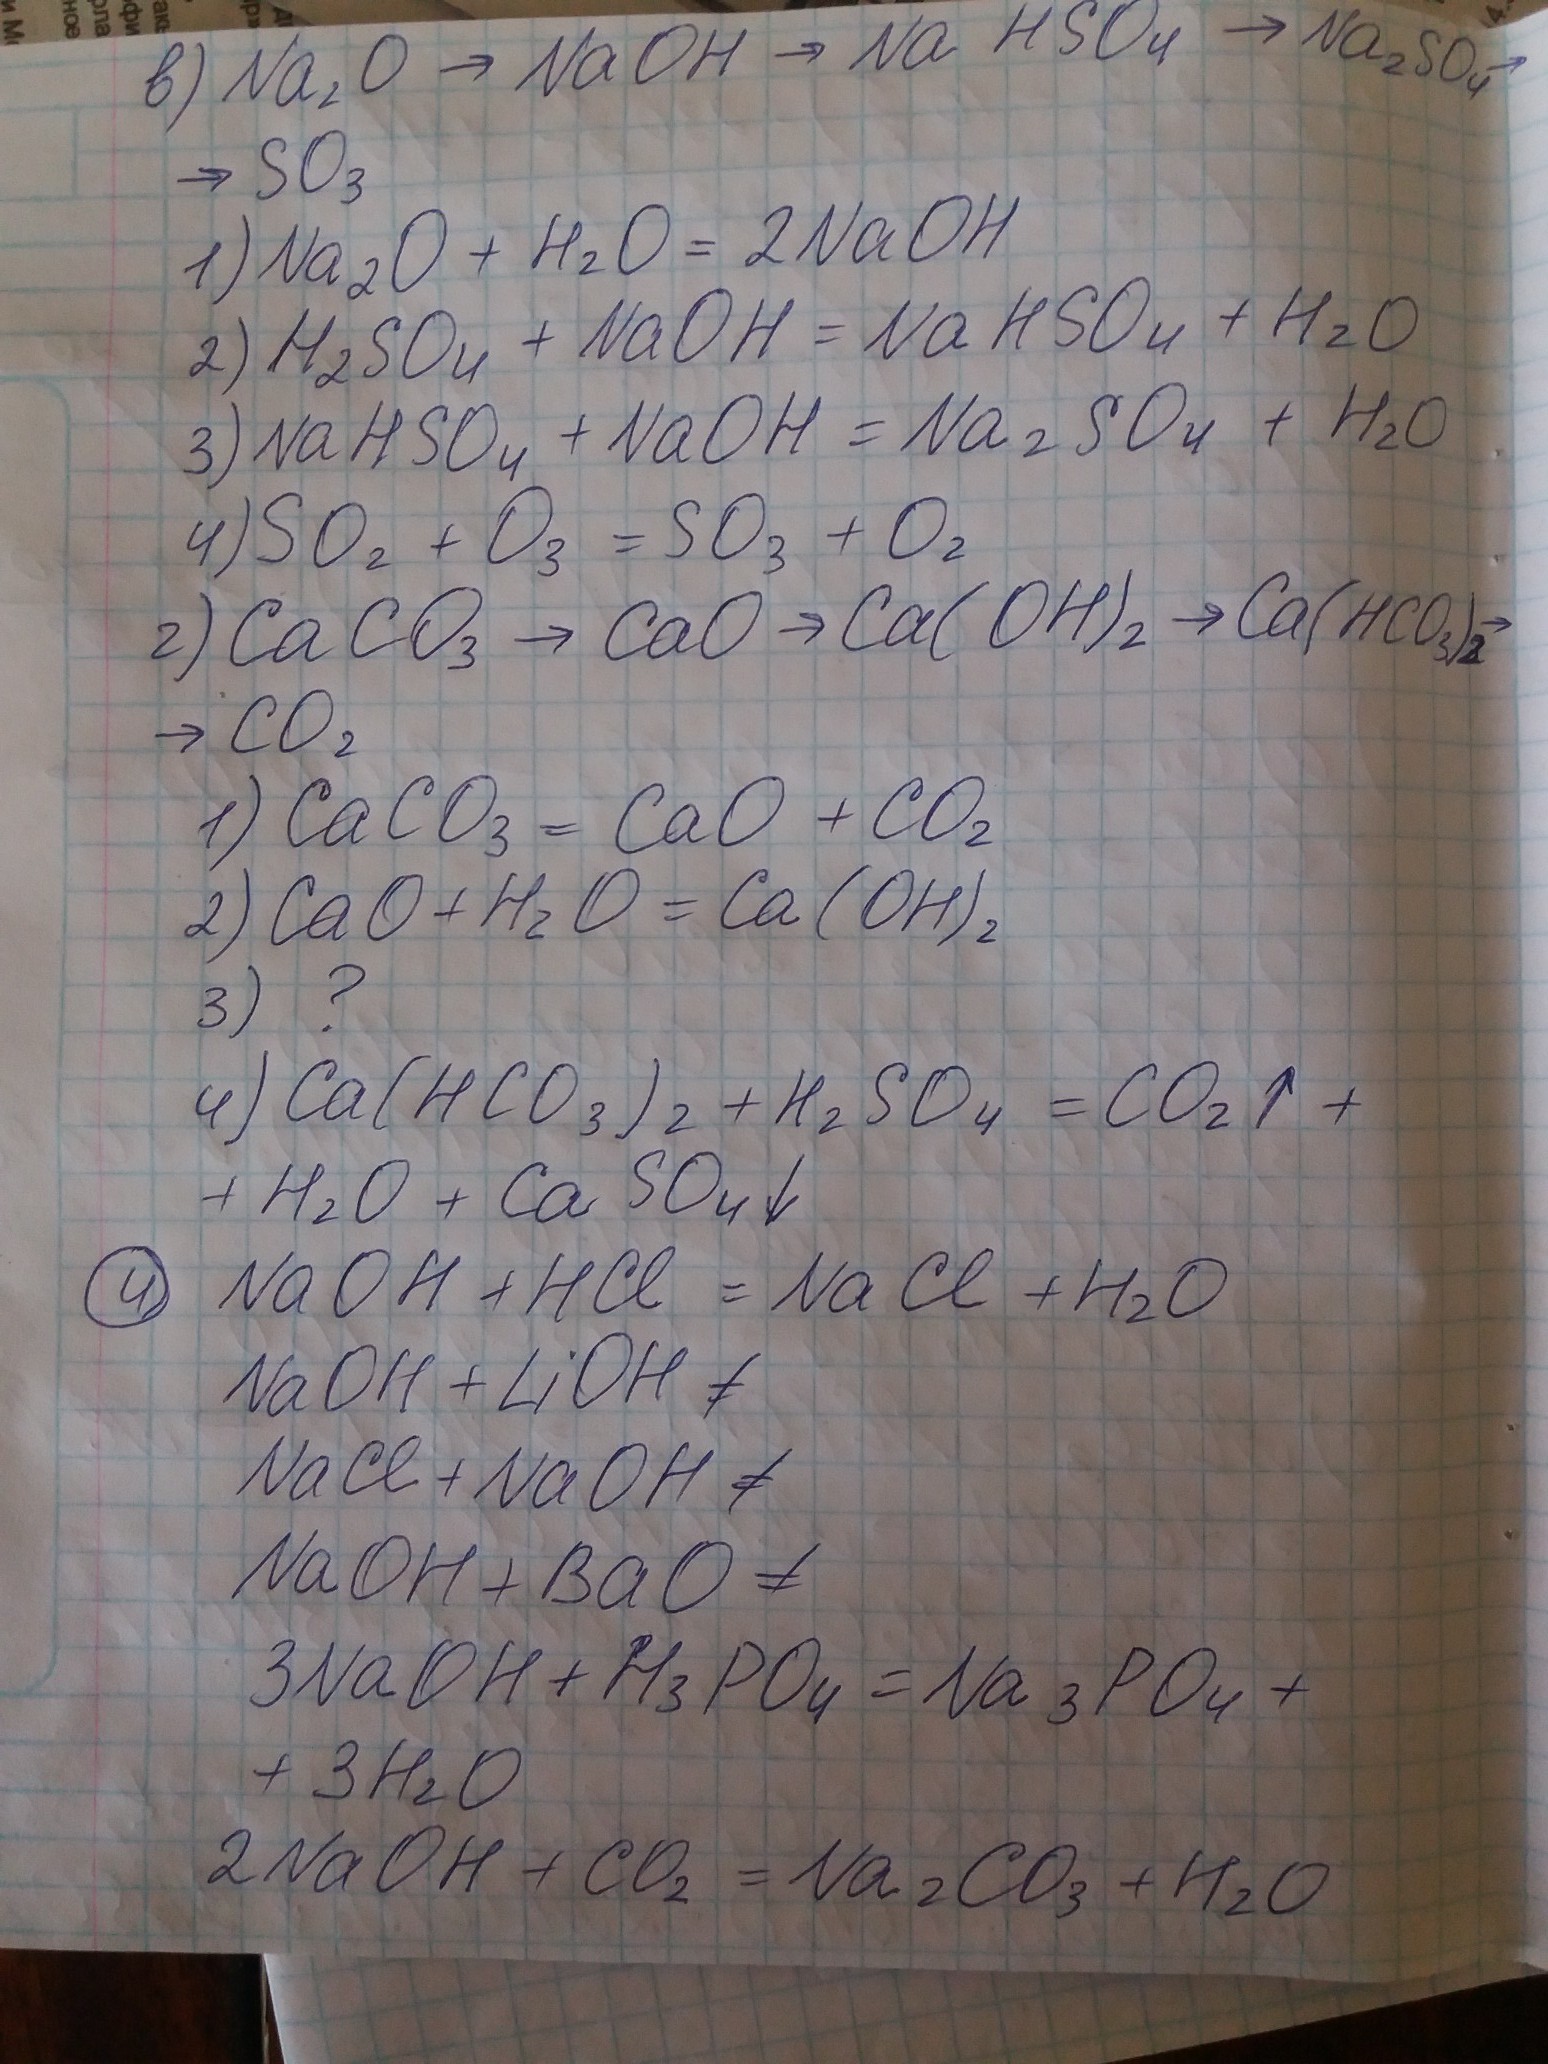 в) Na₂O → NaOH → NaHSO₄ → Na₂SO₄ →
→ SO₃
1) Na₂O + H₂O = 2NaOH
2) H₂SO₄ + NaOH = NaHSO₄ + H₂O
3) NaHSO₄ + NaOH = Na₂SO₄ + H₂O
4) SO₂ + O₃ = SO₃ + O₂
г) CaCO₃ → CaO → Ca(OH)₂ → Ca(HCO₃)₂ →
→ CO₂
1) CaCO₃ = CaO + CO₂
2) CaO + H₂O = Ca(OH)₂
3) ?
4) Ca(HCO₃)₂ + H₂SO₄ = CO₂↑ +
+ H₂O + CaSO₄↓
4 NaOH + HCl = NaCl + H₂O
NaOH + LiOH ≠
NaCl + NaOH ≠
NaOH + BaO ≠
3NaOH + H₃PO₄ = Na₃PO₄ +
+ 3H₂O
2NaOH + CO₂ = Na₂CO₃ + H₂O